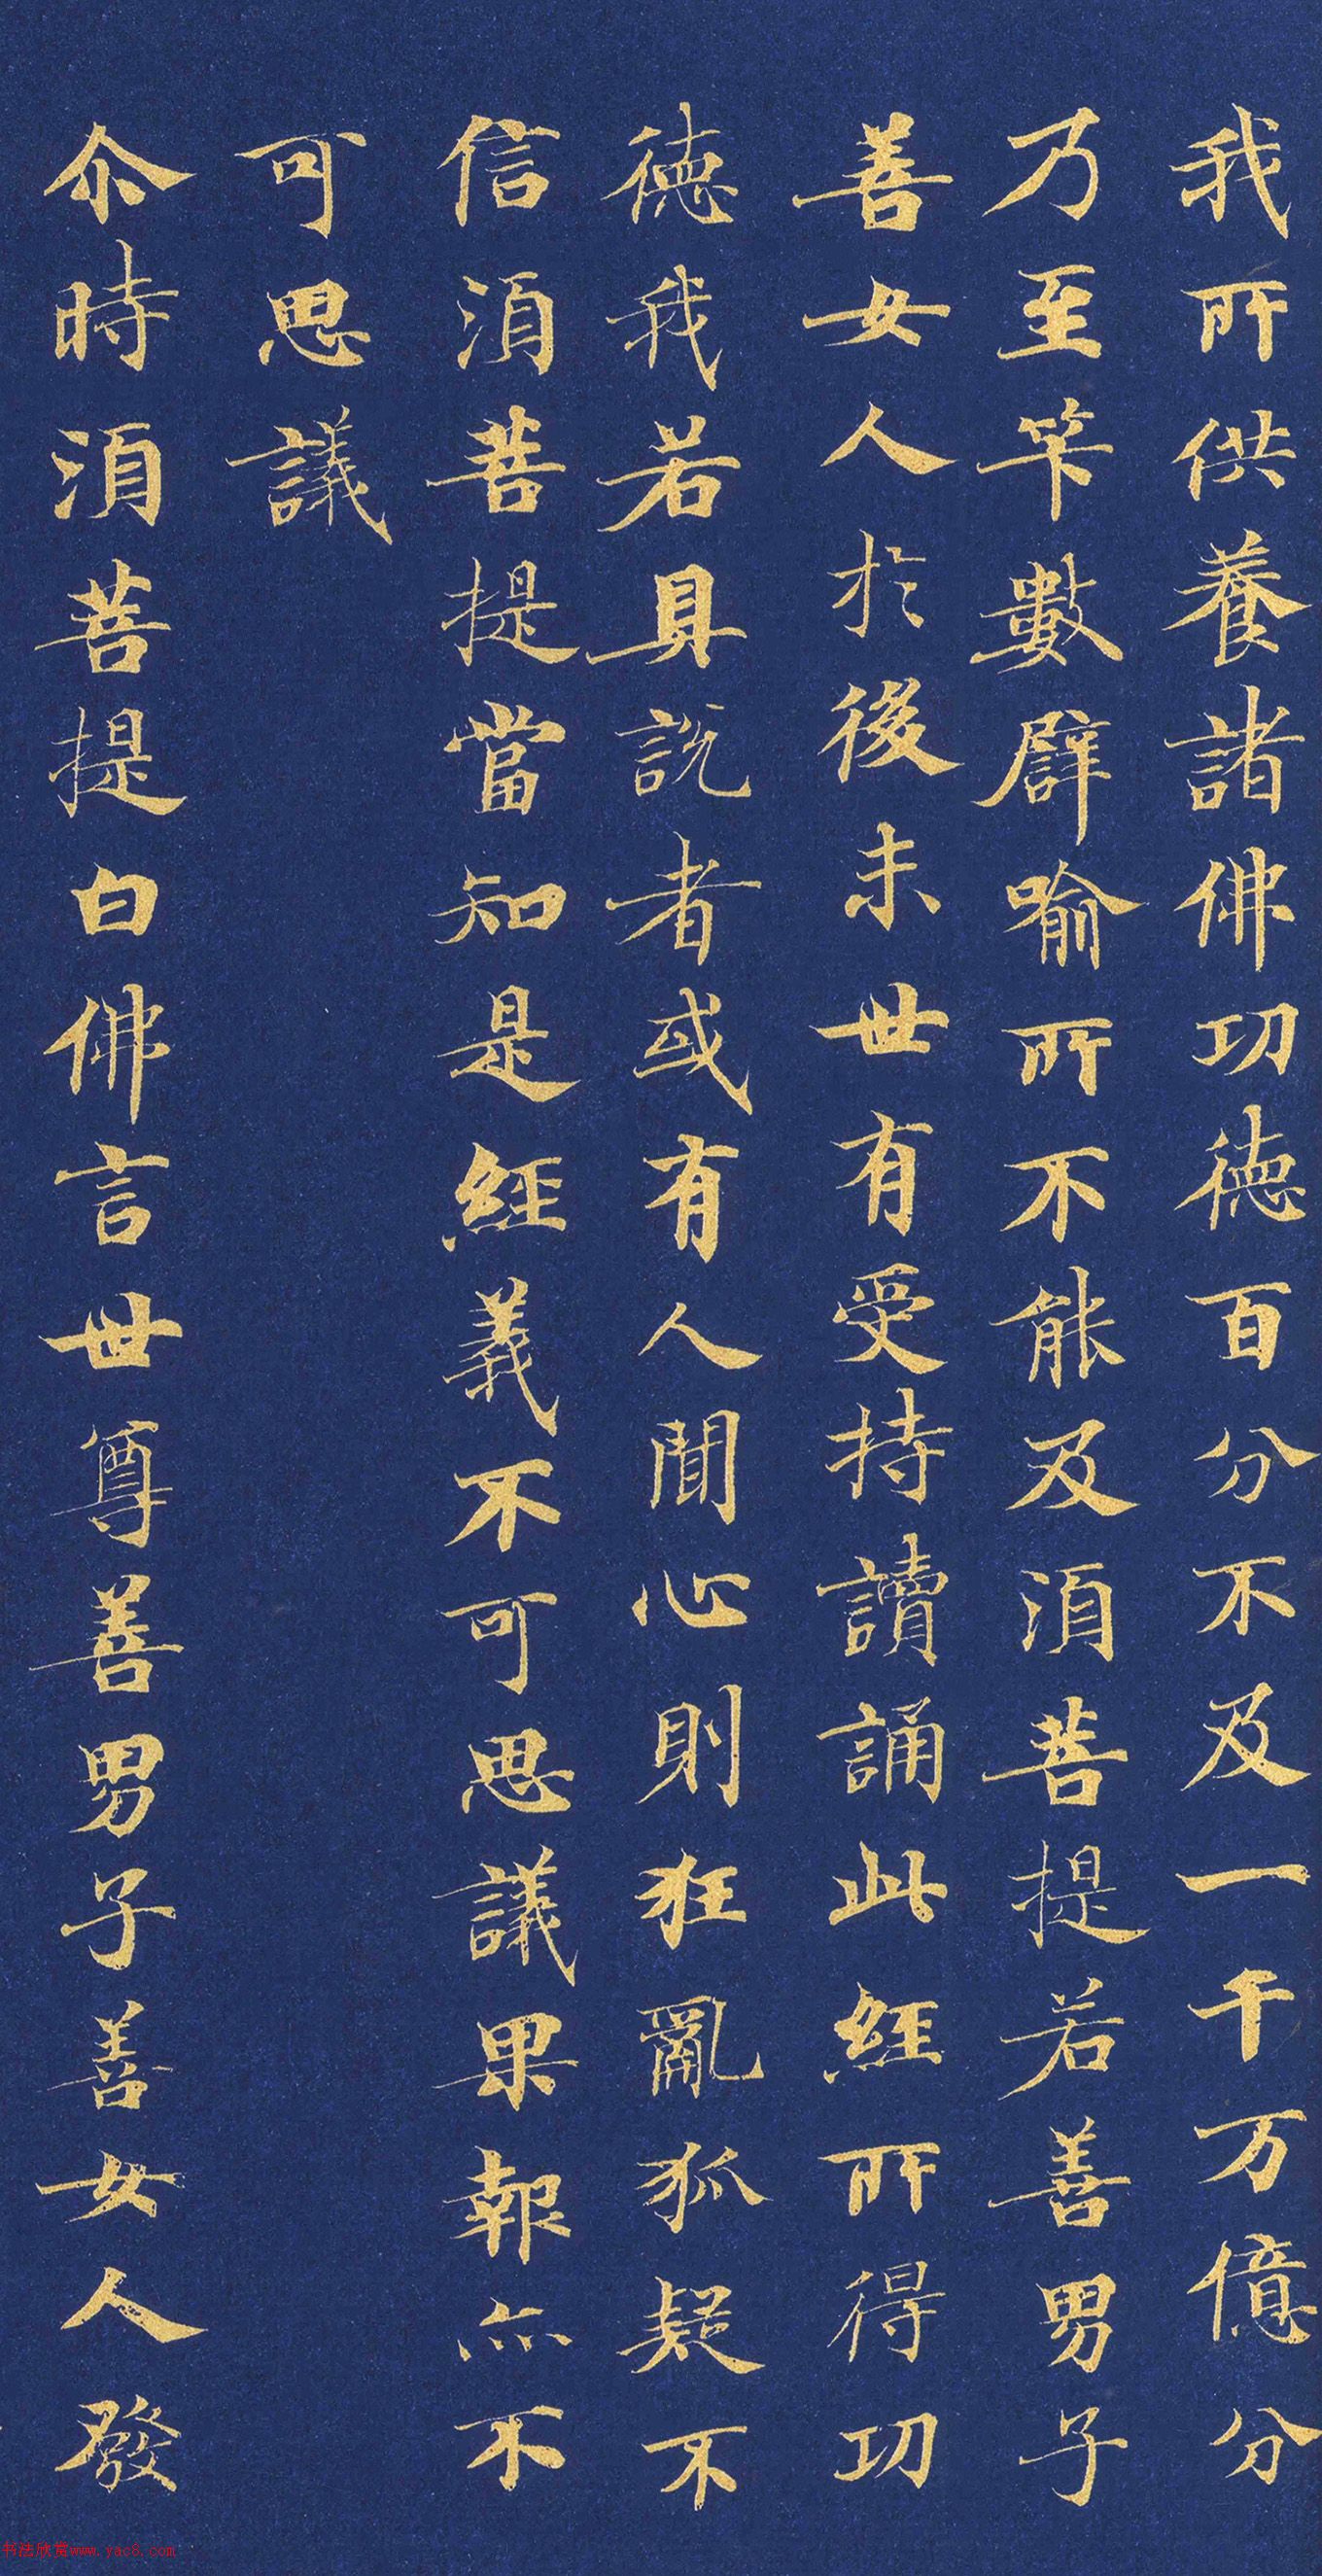 我所供養諸佛功德百分不及一千万億分
乃至筭數譬喻所不能及須菩提若善男子
善女人於後末世有受持讀誦此經所得功
德我若具說者或有人聞心則狂亂狐疑不
信須菩提當知是經義不可思議果報亦不
可思議
尒時須菩提白佛言世尊善男子善女人發
书法欣赏www.yac8.com